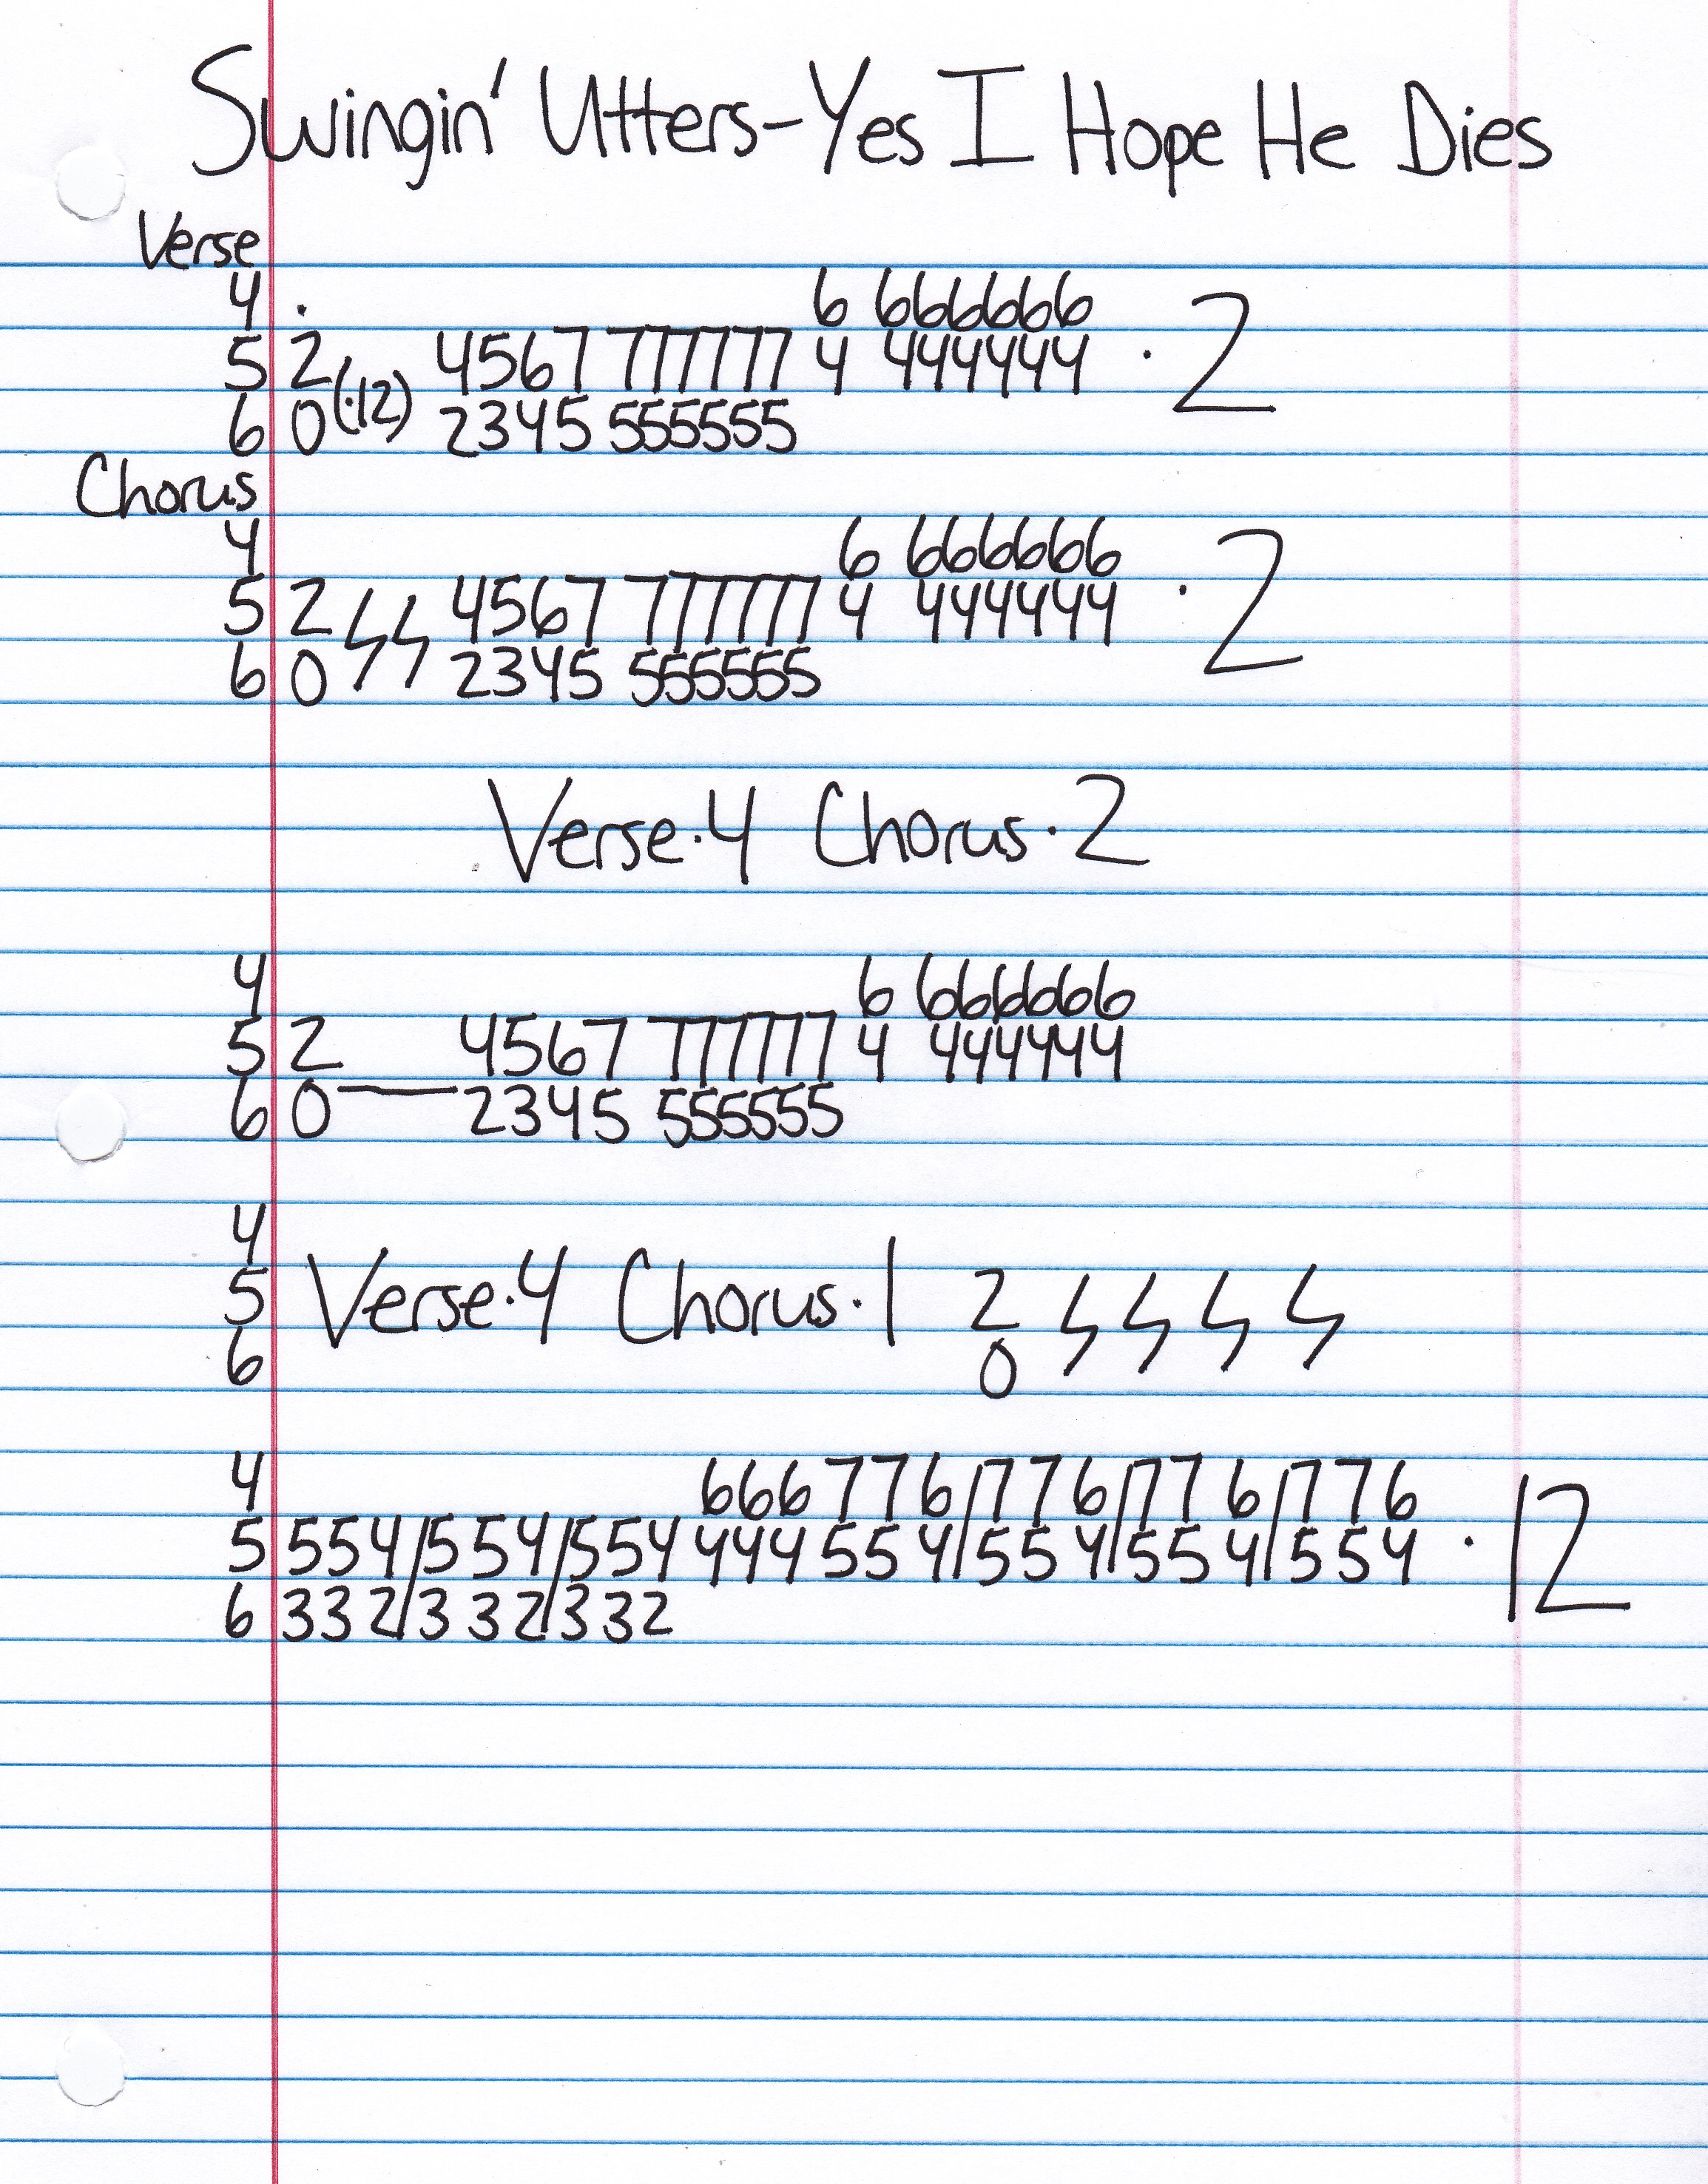 Swingin' Utters-Yes I Hope He Dies
Verse
4 . 6 666666
5 2 4567 777777 4 444444 · 2
6 0 (·12) 2345 555555
Chorus
4 6 666666
5 2 4567 777777 4 444444 · 2
6 0 2345 555555
Verse·4 Chorus·2
4 6 666666
5 2 4567 777777 4 444444
6 0 — 2345 555555
4
5 Verse·4 Chorus·1 2
6 0
4 666 776/776/776/776
5 554/554/554 444 554/554/554/554 ·12
6 332/332/332